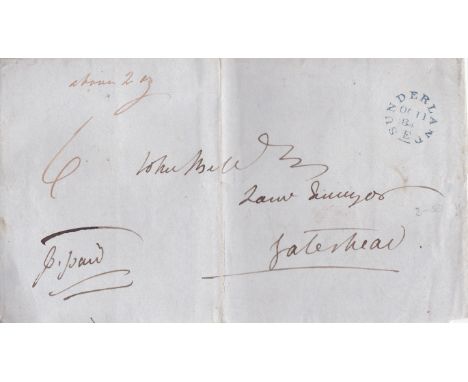 above 2 oz
SUNDERLAND
OC 11
E
6
John Bell
Land Surveyor
Gateshead.
p. paid